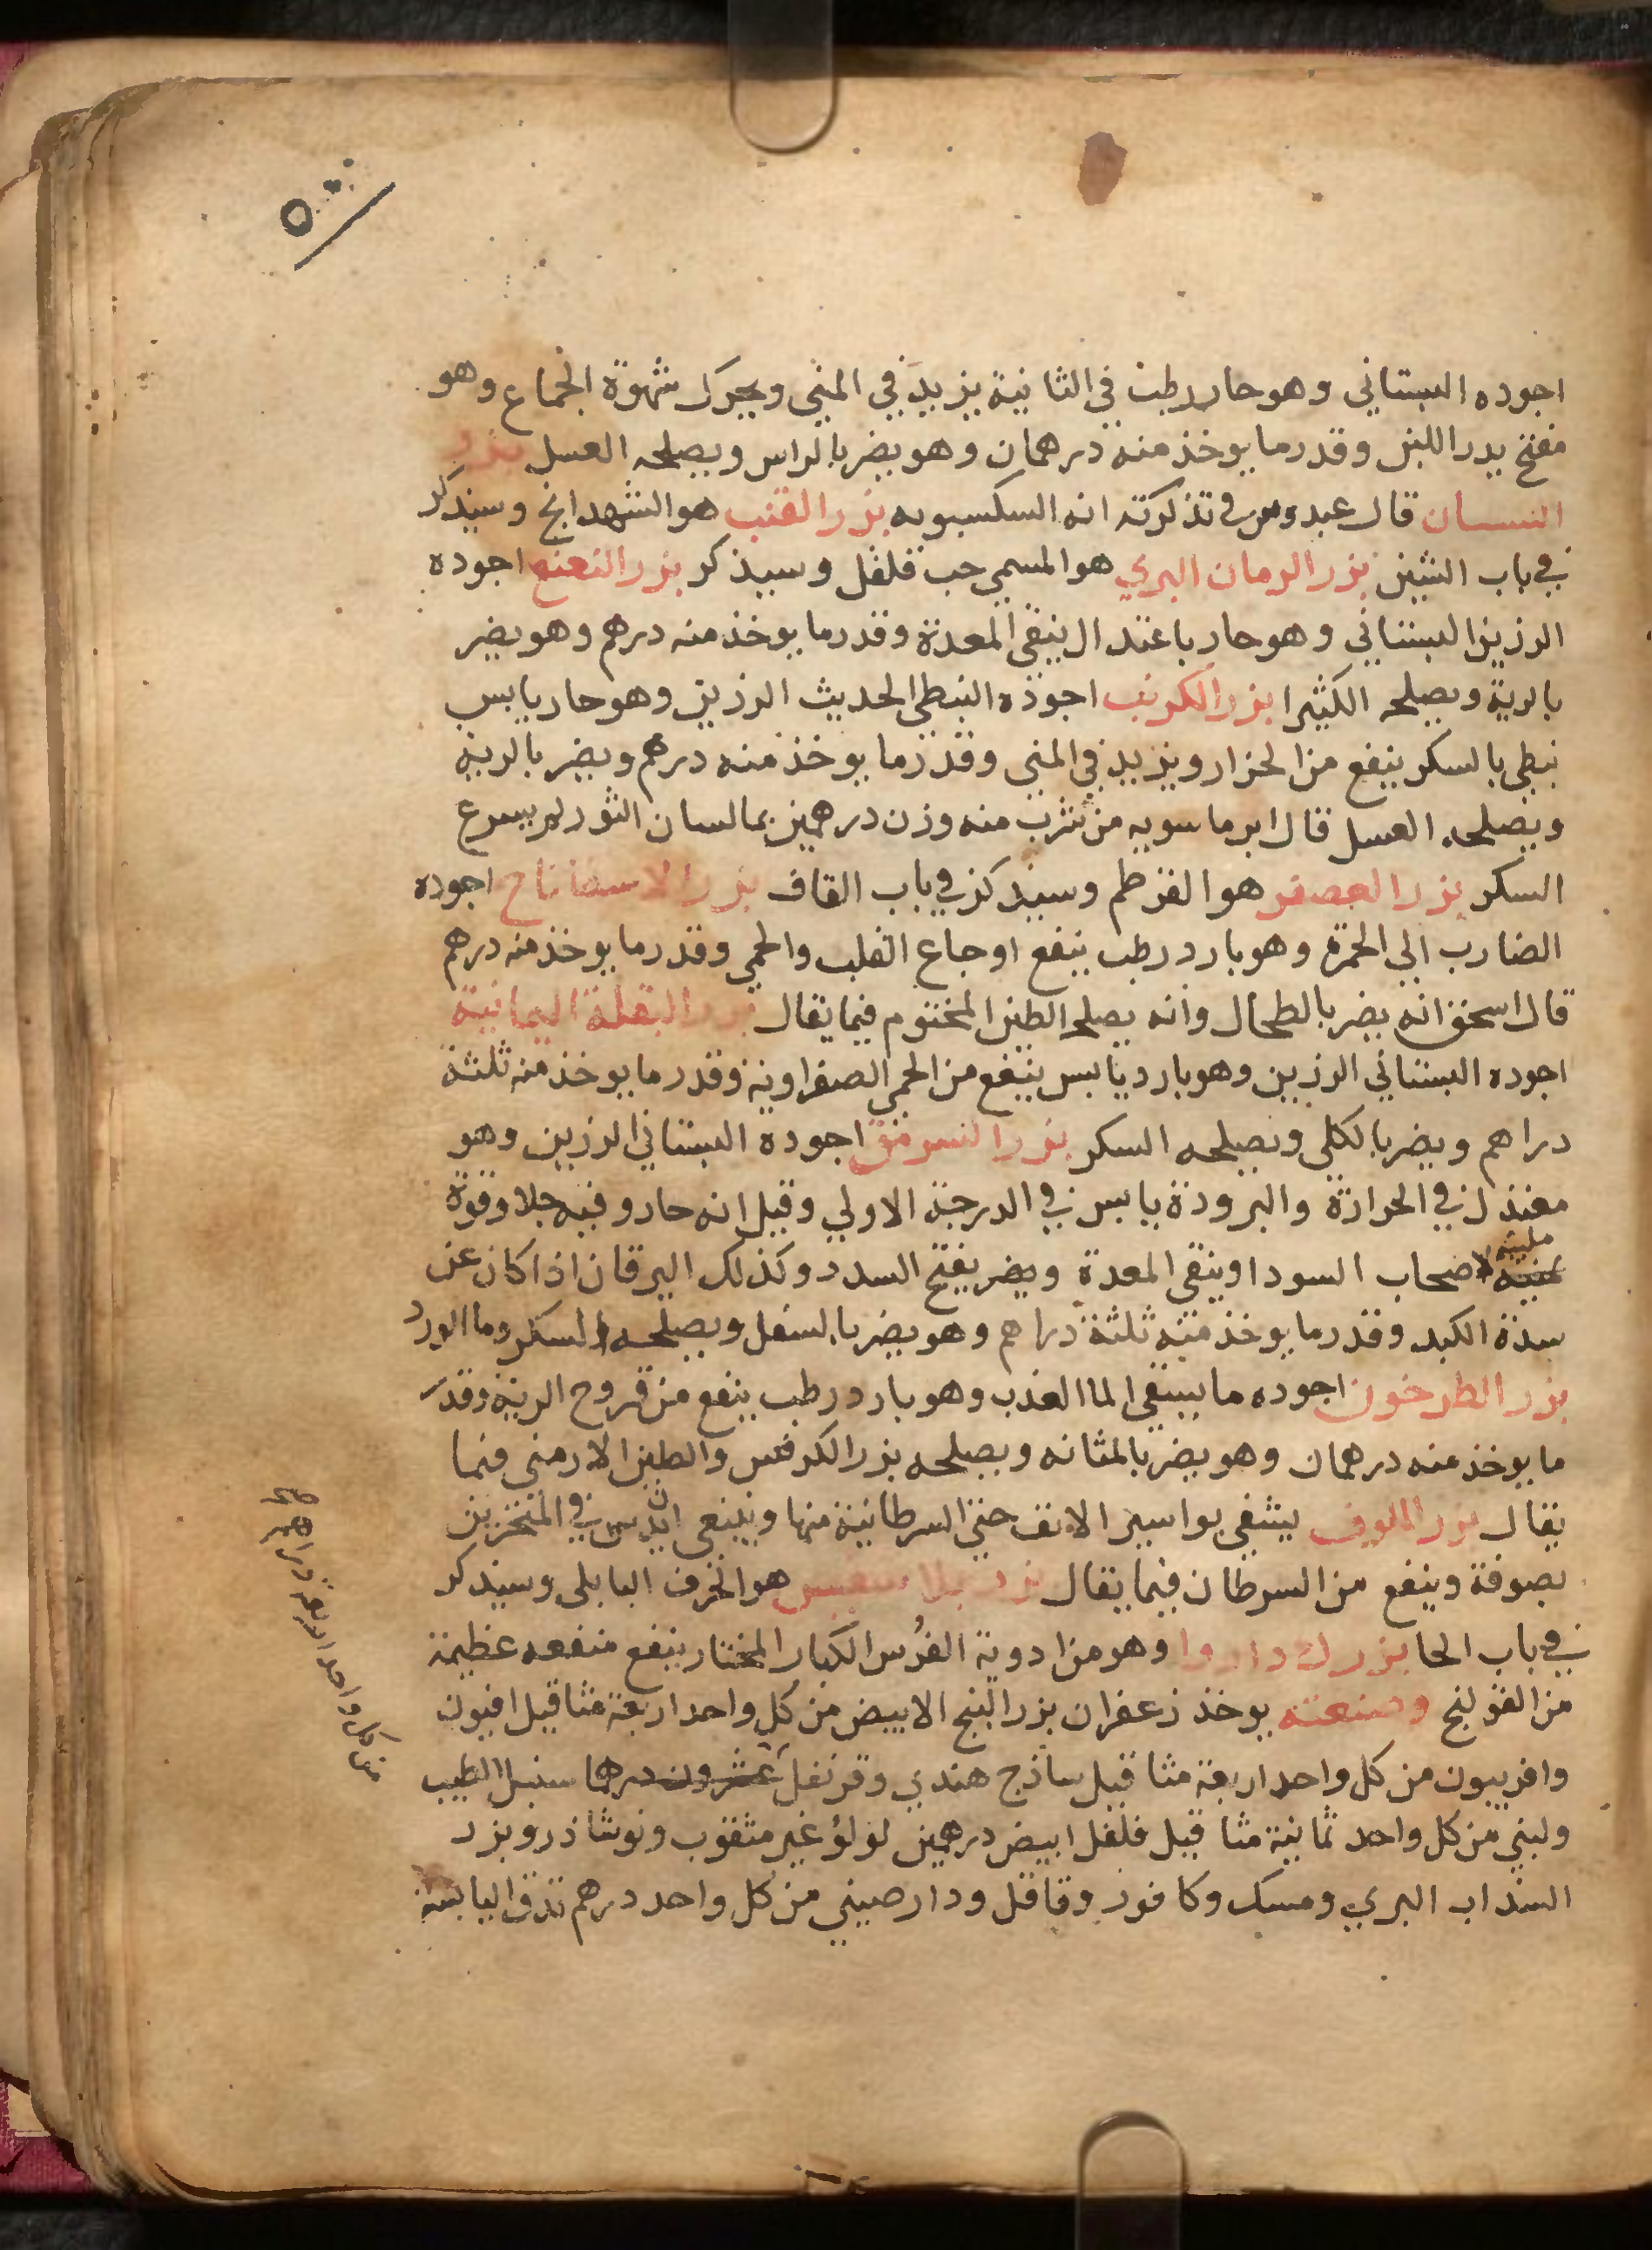 ٥٠
اجوده البستاني وهو حار رطب في الثانية يزيد في المني ويحرك شهوة الجماع وهو
مفتح يدر اللبن وقدر ما يوخذ منه درهمان وهو يضر بالراس ويصلحه العسل بزر
قال عبدوس في تذكرته انه السكسبويه بزر القنب هو الشهدانج وسيذكر
في باب الشين بزر الرمان البري هو المسمى حب قلقل وسيذكر بزر النعنع اجوده
الرزين البستاني وهو حار باعتدال ينقي المعدة وقدر ما يوخذ منه درهم وهو يضر
بالرية ويصلحه الكثيرا بزر الكرنب اجوده النبطي الحديث الرزين وهو حار يابس
نبطي بالسكر ينفع من الحزاز ويزيد في المني وقدر ما يوخذ منه درهم ويضر بالرية
ويصلحه العسل قال ابن ماسويه من شرب منه وزن درهمين بما لسان الثور لم يسرع
السكر بزر العصفر هو القرطم وسيذكر في باب القاف بزر الاسفاناخ اجوده
الضارب الى الحمرة وهو بارد رطب ينفع اوجاع القلب والحمى وقدر ما يوخذ منه درهم
قال اسحق انه يضر بالطحال وانه يصلحه الطين المختوم فيما يقال بزر البقلة اليمانية
اجوده البستاني الرزين وهو بارد يابس ينفع من الحمى الصفراوية وقدر ما يوخذ منه ثلثة
دراهم ويضر بالكلى ويصلحه السكر بزر السرمق اجوده البستاني الرزين وهو
معتدل في الحرارة والبرودة يابس في الدرجة الاولى وقيل انه حار وفيه جلا وقوة
ملينة لاصحاب السودا وينقي المعدة ويضر يفتح السدد وكذلك اليرقان اذا كان عن
سدة الكبد وقدر ما يوخذ منه ثلثة دراهم وهو يضر بالسفل ويصلحه السكر وما الورد
بزر الطرخون اجوده ما يسقى الما العذب وهو بارد رطب ينفع من قروح الرية وقدر
ما يوخذ منه درهمان وهو يضر بالمثانه ويصلحه بزر الكرفس والطين الارمني فيما
يقال بزر اللوف يشفي بواسير الانف حتى السرطانية منها وينبغي ان يدس في المنخرين
بصوفة وينفع من السرطان فيما يقال هو الحرف البابلى وسيذكر
في باب الحا بزرك داروا وهو من ادوية الفرس الكبار المختار ينفع منفعه عظيمة
من القولنج وصنعته يوخذ زعفران بزر البنج الابيض من كل واحد اربعة مثاقيل افيون
وافربيون من كل واحد اربعة مثاقيل ساذج هندي وقرنفل عشرون درهما سنبل الطيب
ولبني من كل واحد ثمانية مثاقيل فلفل ابيض درهمين لؤلؤ غير مثقوب ونوشاذر وبزر
السذاب البري ومسك وكافور وقاقل ودارصيني من كل واحد درهم تدق اليابسة
من كل واحد اربعة دراهم صح